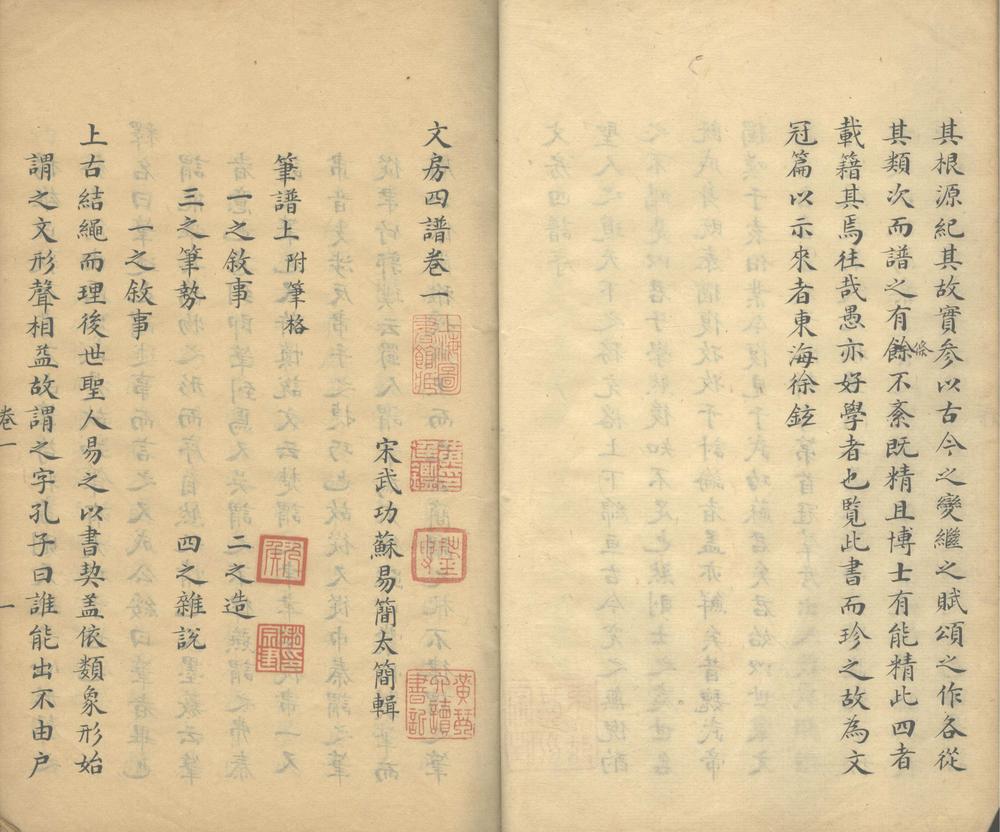 其根源紀其故實參以古今之變繼之賦頌之作各從
其類次而譜之有餘不紊既精且博士有能精此四者
條
載籍其焉往哉愚亦好學者也覧此書而珍之故為文
冠篇以示來者東海徐鉉
文房四譜卷一
宋武功蘇易簡太簡輯
筆譜上附筆格
一之敘事 二之造
三之筆勢 四之雜說
一之敘事
上古結繩而理後世聖人易之以書契盖依類象形始
謂之文形聲相益故謂之字孔子曰誰能出不由户
卷一
一
上海圖書館藏
黃丕烈讀書記